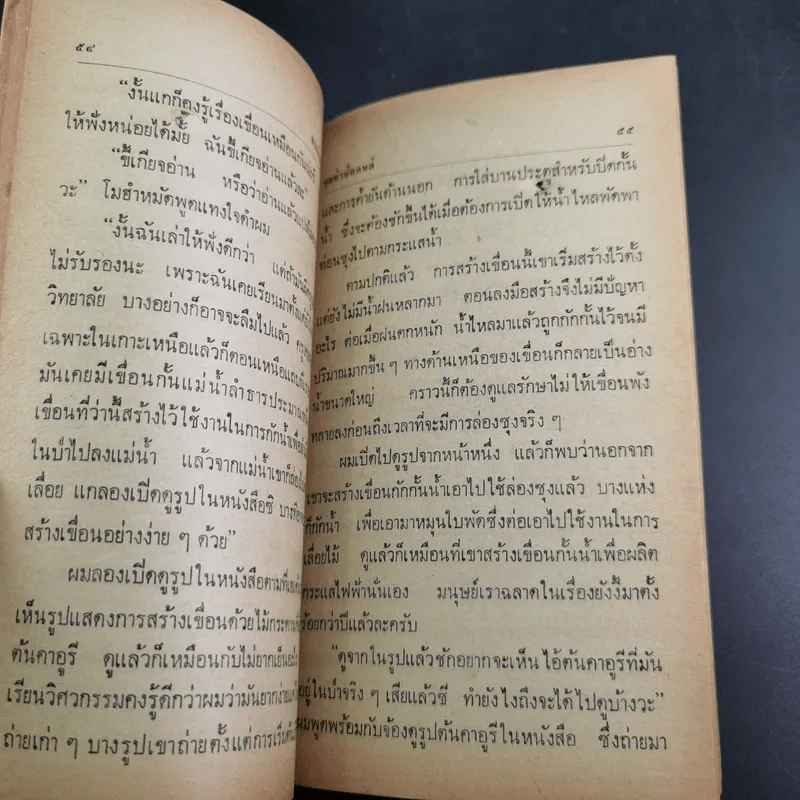 ๕๔
“งั้นแกก็คงรู้เรื่องเขื่อนเหมือนกัน
ให้ฟังหน่อยได้มั้ย ฉันขี้เกียจอ่านแล้วละ”
“ขี้เกียจอ่าน หรือว่าอ่านแล้ว
วะ” โมฮำหมัดพูดแทงใจดำผม
“งั้นฉันเล่าให้ฟังดีกว่า แต่ถ้ามัน
ไม่รับรองนะ เพราะฉันเคยเรียนมาตั้งแต่
วิทยาลัย บางอย่างก็อาจจะลืมไปแล้ว
เฉพาะในเกาะเหนือแล้วก็ตอนเหนือ
มันเคยมีเขื่อนกั้นแม่น้ำลำธารประมาณ
เขื่อนที่ว่านี้สร้างไว้ใช้งานในการกักน้ำเพื่อ
ในป่าไปลงแม่น้ำ แล้วจากแม่น้ำเขาก็
เลื่อย แกลองเปิดดูรูปในหนังสือซิ
สร้างเขื่อนอย่างง่าย ๆ ด้วย”
ผมลองเปิดดูรูปในหนังสือตามที่
เห็นรูปแสดงการสร้างเขื่อนด้วยไม้กระดาน
ต้นคาอูรี ดูแล้วก็เหมือนกับไม่ยากเย็น
เรียนวิศวกรรมคงรู้ดีกว่าผมว่ามันยากง่าย
ถ่ายเก่า ๆ บางรูปเขาถ่ายตั้งแต่การเริ่ม
๕๕
และการค้ำยันด้านนอก การใส่บานประตูสำหรับปิดกั้น
น้ำ ซึ่งจะต้องชักขึ้นได้เมื่อต้องการเปิดให้น้ำไหลพัดพา
ท่อนซุงไปตามกระแสน้ำ
ตามปกติแล้ว การสร้างเขื่อนนี้เขาเริ่มสร้างไว้ตั้ง
แต่ยังไม่มีน้ำฝนหลากมา ตอนลงมือสร้างจึงไม่มีปัญหา
อะไร ต่อเมื่อฝนตกหนัก น้ำไหลมาแล้วถูกกักกั้นไว้จนมี
ปริมาณมากขึ้น ๆ ทางด้านเหนือของเขื่อนก็กลายเป็นอ่าง
น้ำขนาดใหญ่ คราวนี้ก็ต้องดูแลรักษาไม่ให้เขื่อนพัง
ทลายลงก่อนถึงเวลาที่จะมีการล่องซุงจริง ๆ
ผมเปิดไปดูรูปจากหน้าหนึ่ง แล้วก็พบว่านอกจาก
เขาจะสร้างเขื่อนกักกั้นน้ำเอาไปใช้ล่องซุงแล้ว บางแห่ง
ก็กักน้ำ เพื่อเอามาหมุนใบพัดซึ่งต่อเอาไปใช้งานในการ
เลื่อยไม้ ดูแล้วก็เหมือนที่เขาสร้างเขื่อนกั้นน้ำเพื่อผลิต
กระแสไฟฟ้านั่นเอง มนุษย์เราฉลาดในเรื่องยังงี้มาตั้ง
ร้อยกว่าปีแล้วละครับ
“ดูจากในรูปแล้วชักอยากจะเห็นไอ้ต้นคาอูรีที่มัน
อยู่ในป่าจริง ๆ เสียแล้วซี ทำยังไงถึงจะได้ไปดูบ้างวะ”
ผมพูดพร้อมกับจ้องดูรูปต้นคาอูรีในหนังสือ ซึ่งถ่ายมา